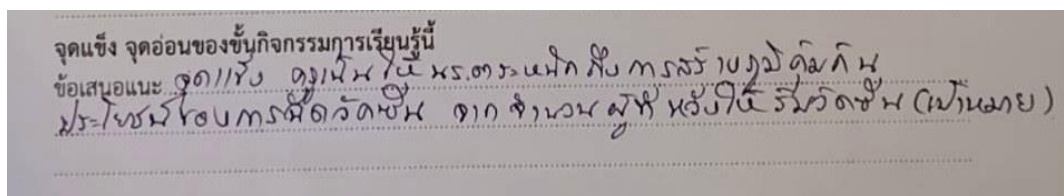 จุดแข็ง จุดอ่อนของขั้นกิจกรรมการเรียนรู้นี้
ข้อเสนอแนะ จุดแข็ง ครูเน้นให้ นร.ตระหนักถึงการสร้างภูมิคุ้มกัน
ประโยชน์ของการฉีดวัคซีน จากจำนวนผู้ที่หวังให้รับวัคซีน (เป้าหมาย)